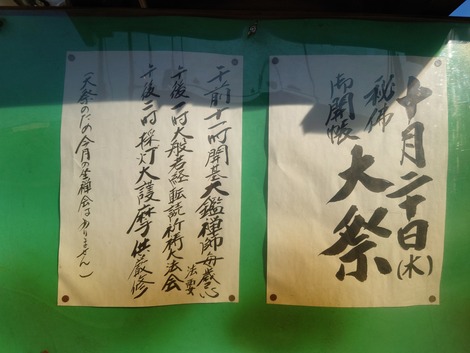 十月二十日(木)
秘佛
御開帳
大祭
午前十一時開基大鑑禅師毎歳忌
法要
午後一時大般若経転読祈祷大法会
午後二時採灯大護摩供厳修
(大祭のため今月の坐禅会はありません)